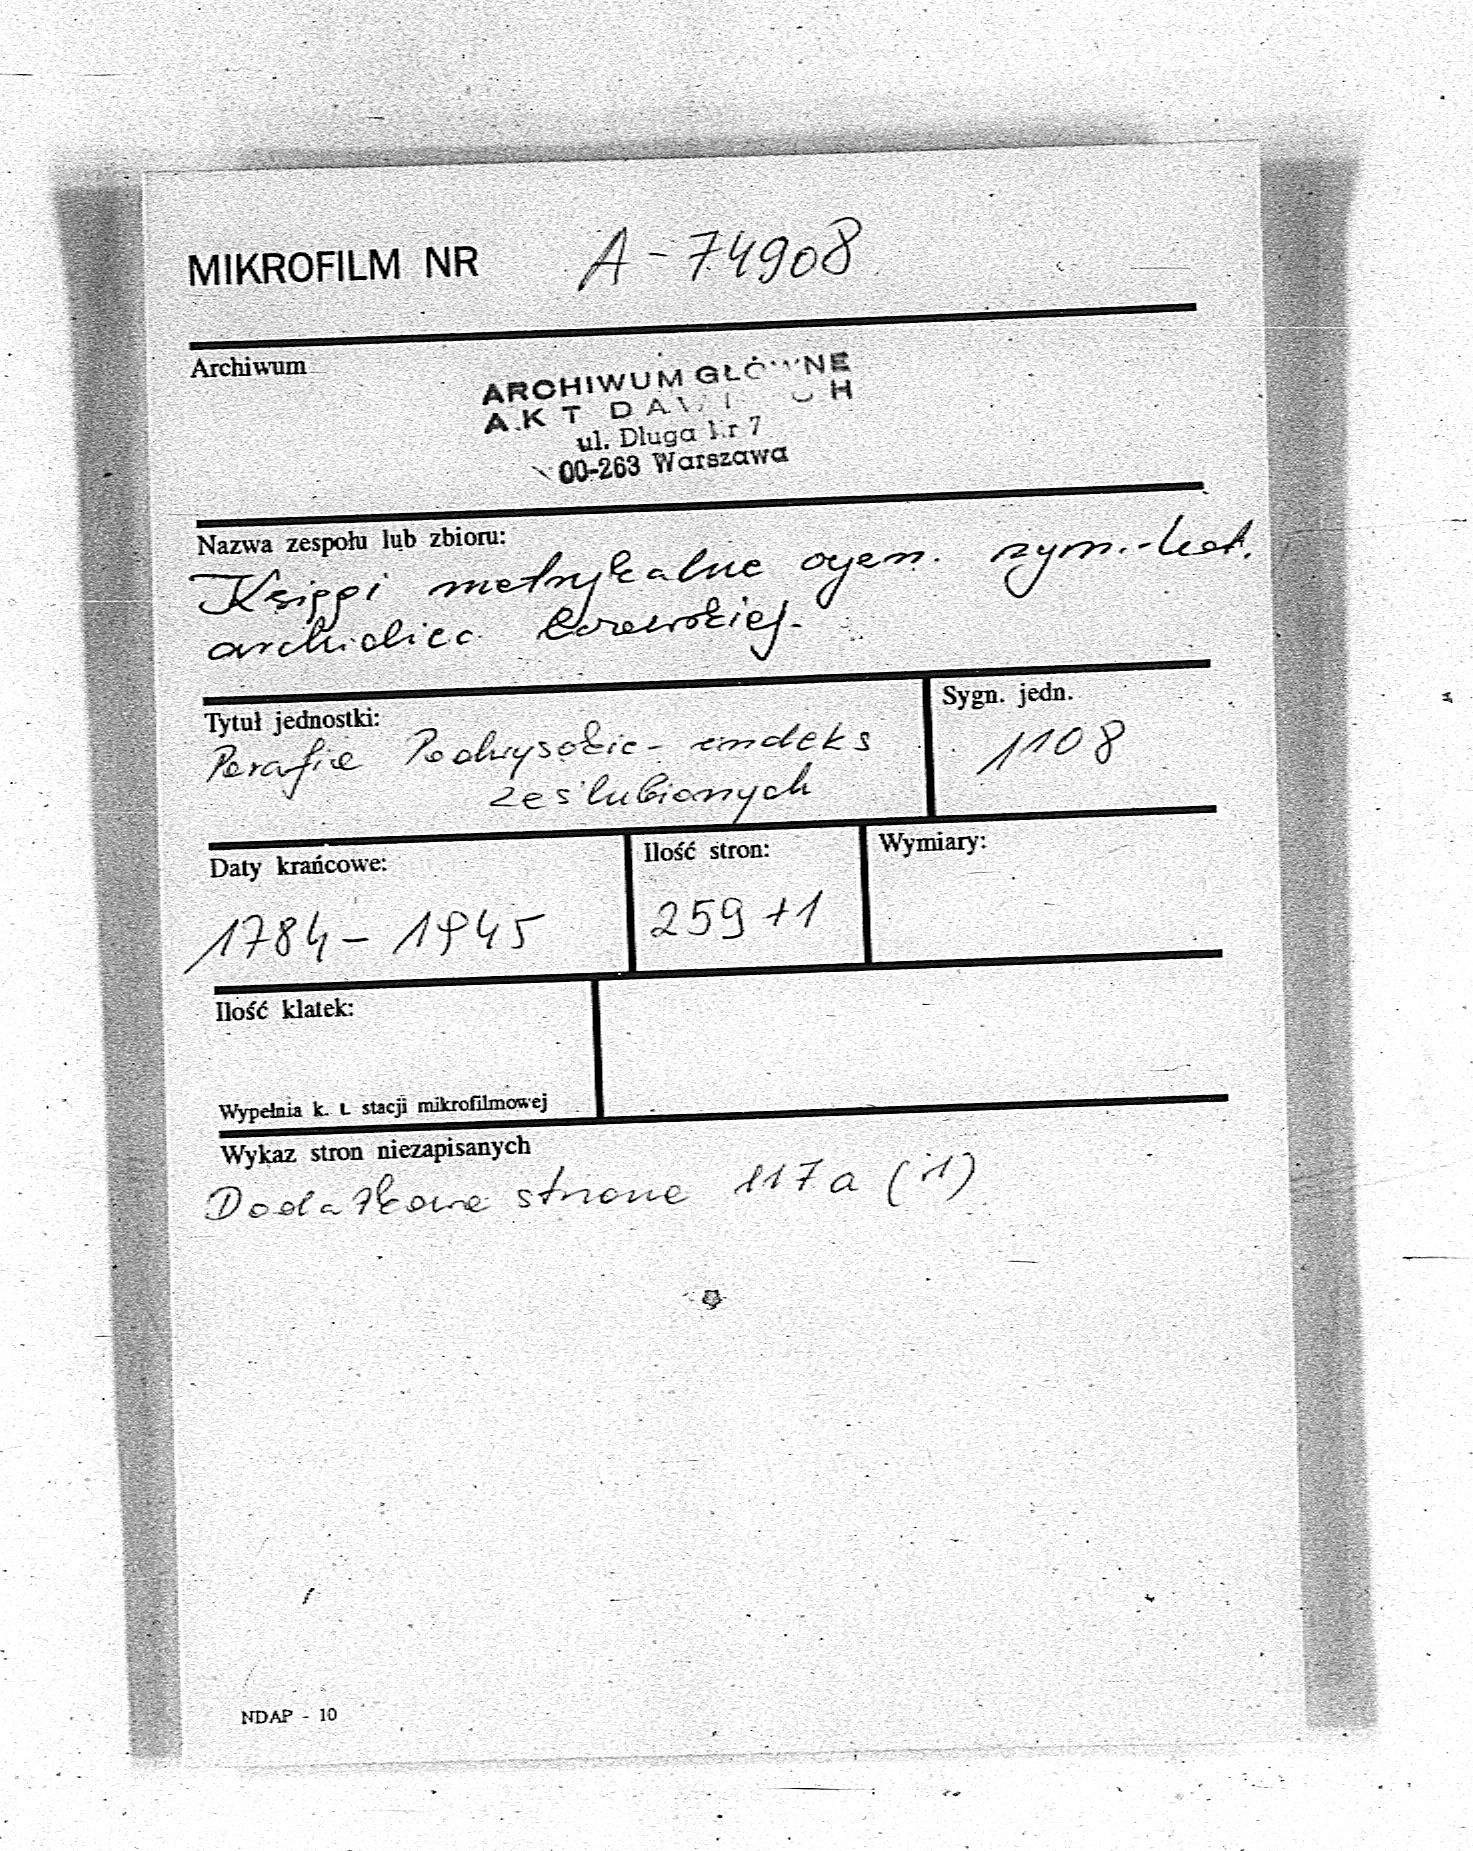 MIKROFILM NR A-74908
Archiwum
ARCHIWUM GŁÓWNE
AKT DAWNYCH
ul. Długa Nr 7
00-263 Warszawa
Nazwa zespołu lub zbioru:
Księgi metrykalne rzym.-kat.
archidiec. lwowskiej.
Tytuł jednostki:
Parafia Podwysokie - indeks
zaślubionych
Sygn. jedn.
1108
Daty krańcowe:
1784 - 1945
Ilość stron:
259+1
Wymiary:
Ilość klatek:
Wypełnia k. t. stacji mikrofilmowej
Wykaz stron niezapisanych
Dodatkowe strone 117a (1)
NDAP - 10